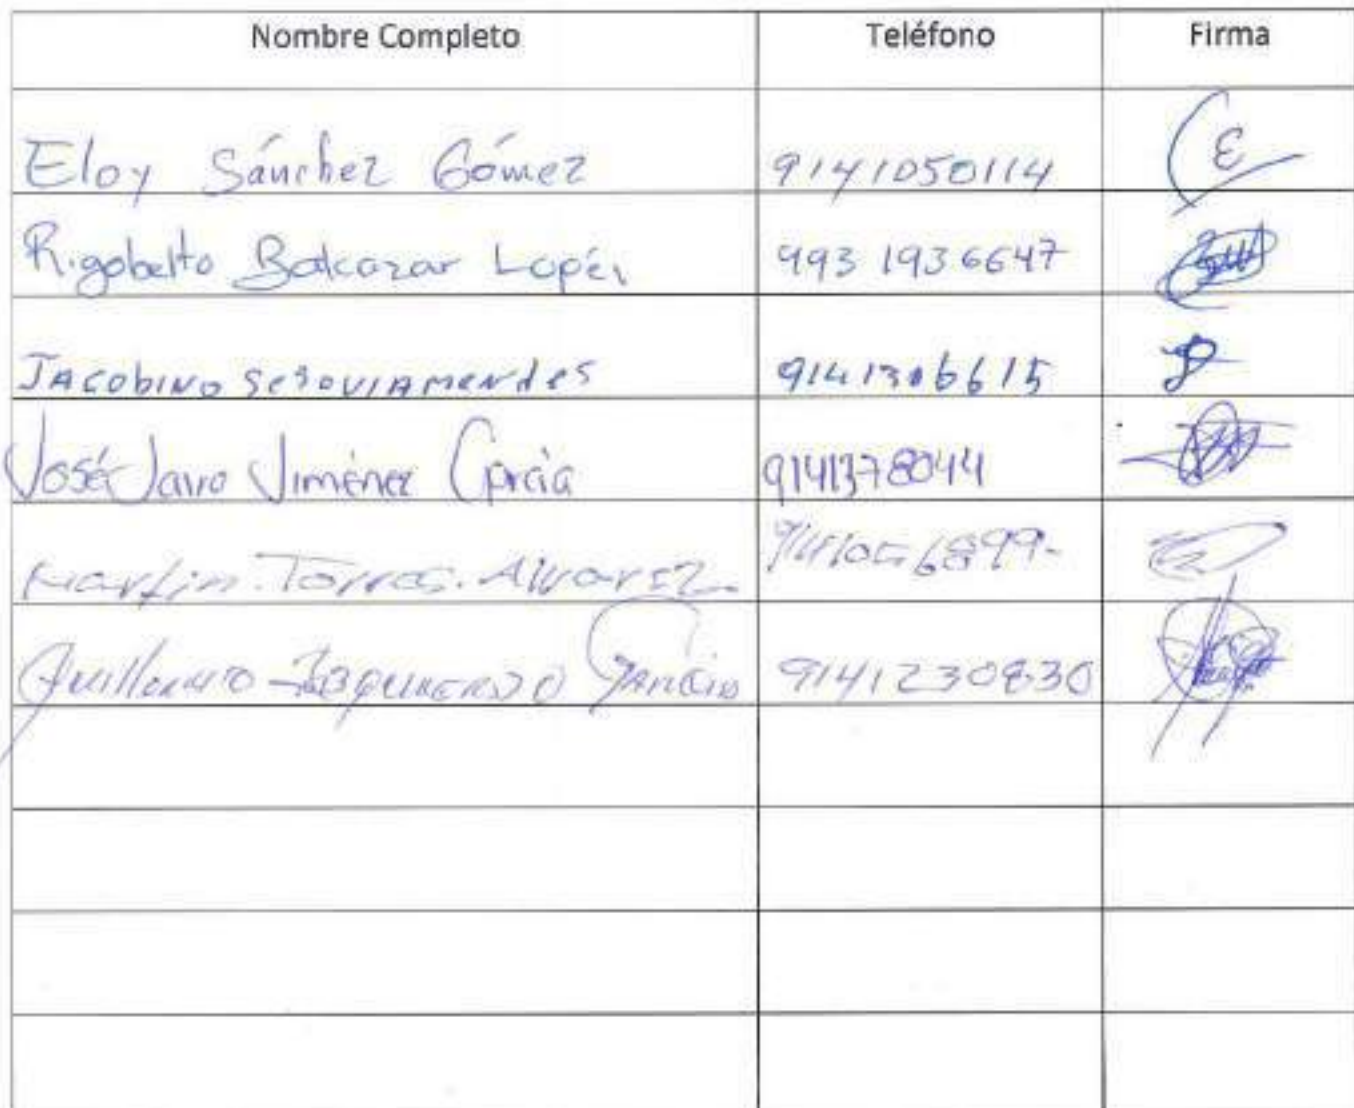 Nombre Completo Teléfono Firma
Eloy Sánchez Gómez 9141050114
Rigoberto Balcazar Lopéz 993 1936647
JACobINO SegOVIAMENdes 9141306615
José Jairo Jiménez García 9141378044
Martin. Torres. Alvarez
Guillermo Izquierdo García 9141230830